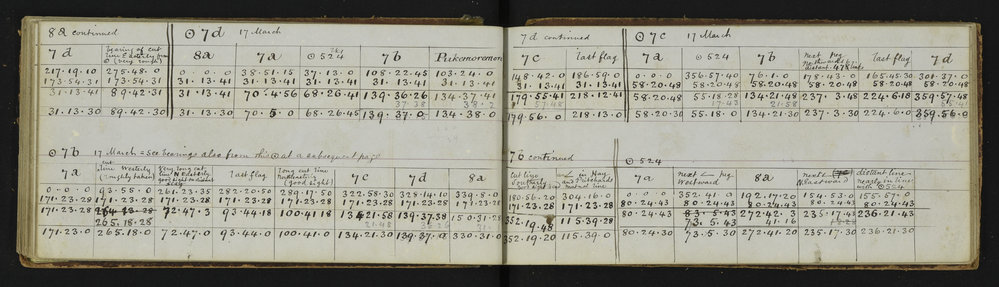 8a continued ⊙ 7d 17 March
7d bearing of cut line Easterly from ⊙ (very rough) 8a 7a ⊙524 7b Pukemoremore
217.19.10 275.48.0 0.0.0 38.51.15 37.13.0 108.22.45 103.24.0
173.54.31 173.54.31 31.13.41 31.13.41 31.13.41 31.13.41 31.13.41
31.13.41 89.42.31 31.13.41 70.4.56 68.26.41 139.36.26 134.37.41
37.38 38.2
31.13.30 89.42.30 31.13.30 70.5.0 68.26.45 139.37.0 134.38.0
⊙ 7b 17 March = See bearings also from this ⊙ at a subsequent page
7a cut line Westerly (roughly taken) Very long cut line N Easterly good sight to distant flag last flag Long cut line (good sight) 7c 7d 8a
0.0.0 93.55.0 261.23.35 282.20.50 289.17.50 322.58.30 328.14.10 339.8.0
171.23.28 171.23.28 171.23.28 171.23.28 171.23.28 171.23.28 171.23.28 171.23.28
171.23.28 265.18.28 72.47.3 93.44.18 100.41.18 134.21.58 139.37.38 150.31.28
171.23.0 265.18.0 72.47.0 93.44.0 100.41.0 134.21.30 139.37.0 330.31.0
7d continued ⊙ 7c 17 March
7c last flag 7a ⊙524 7b next peg Northwards distant last flag 7d
148.42.0 186.59.0 0.0.0 356.57.40 76.1.0 178.43.0 165.45.30 301.37.0
31.13.41 31.13.41 58.20.48 58.20.48 58.20.48 58.20.48 58.20.48 58.20.48
179.55.41 218.12.41 58.20.48 55.18.28 134.21.48 237.3.48 224.6.18 359.57.48
57.48 17.43 21.58
179.56.0 218.13.0 58.20.30 55.18.0 134.21.30 237.3.30 224.6.0 359.56.0
7b continued ⊙524
cut line Southerly in Hay and Richolds 7a next peg Westward 8a next Eastward distant line nearly in line with ⊙524
180.56.20 304.16.0 0.0.0 352.41.0 192.17.20 154.53.0 155.57.0
171.23.28 171.23.28 80.24.43 80.24.43 80.24.43 80.24.43 80.24.43
352.19.48 115.39.28 80.24.43 83.5.43 272.42.3 235.17.43 236.21.43
73.5.43 41.16
352.19.20 115.39.0 80.24.30 73.5.30 272.41.20 235.17.30 236.21.30